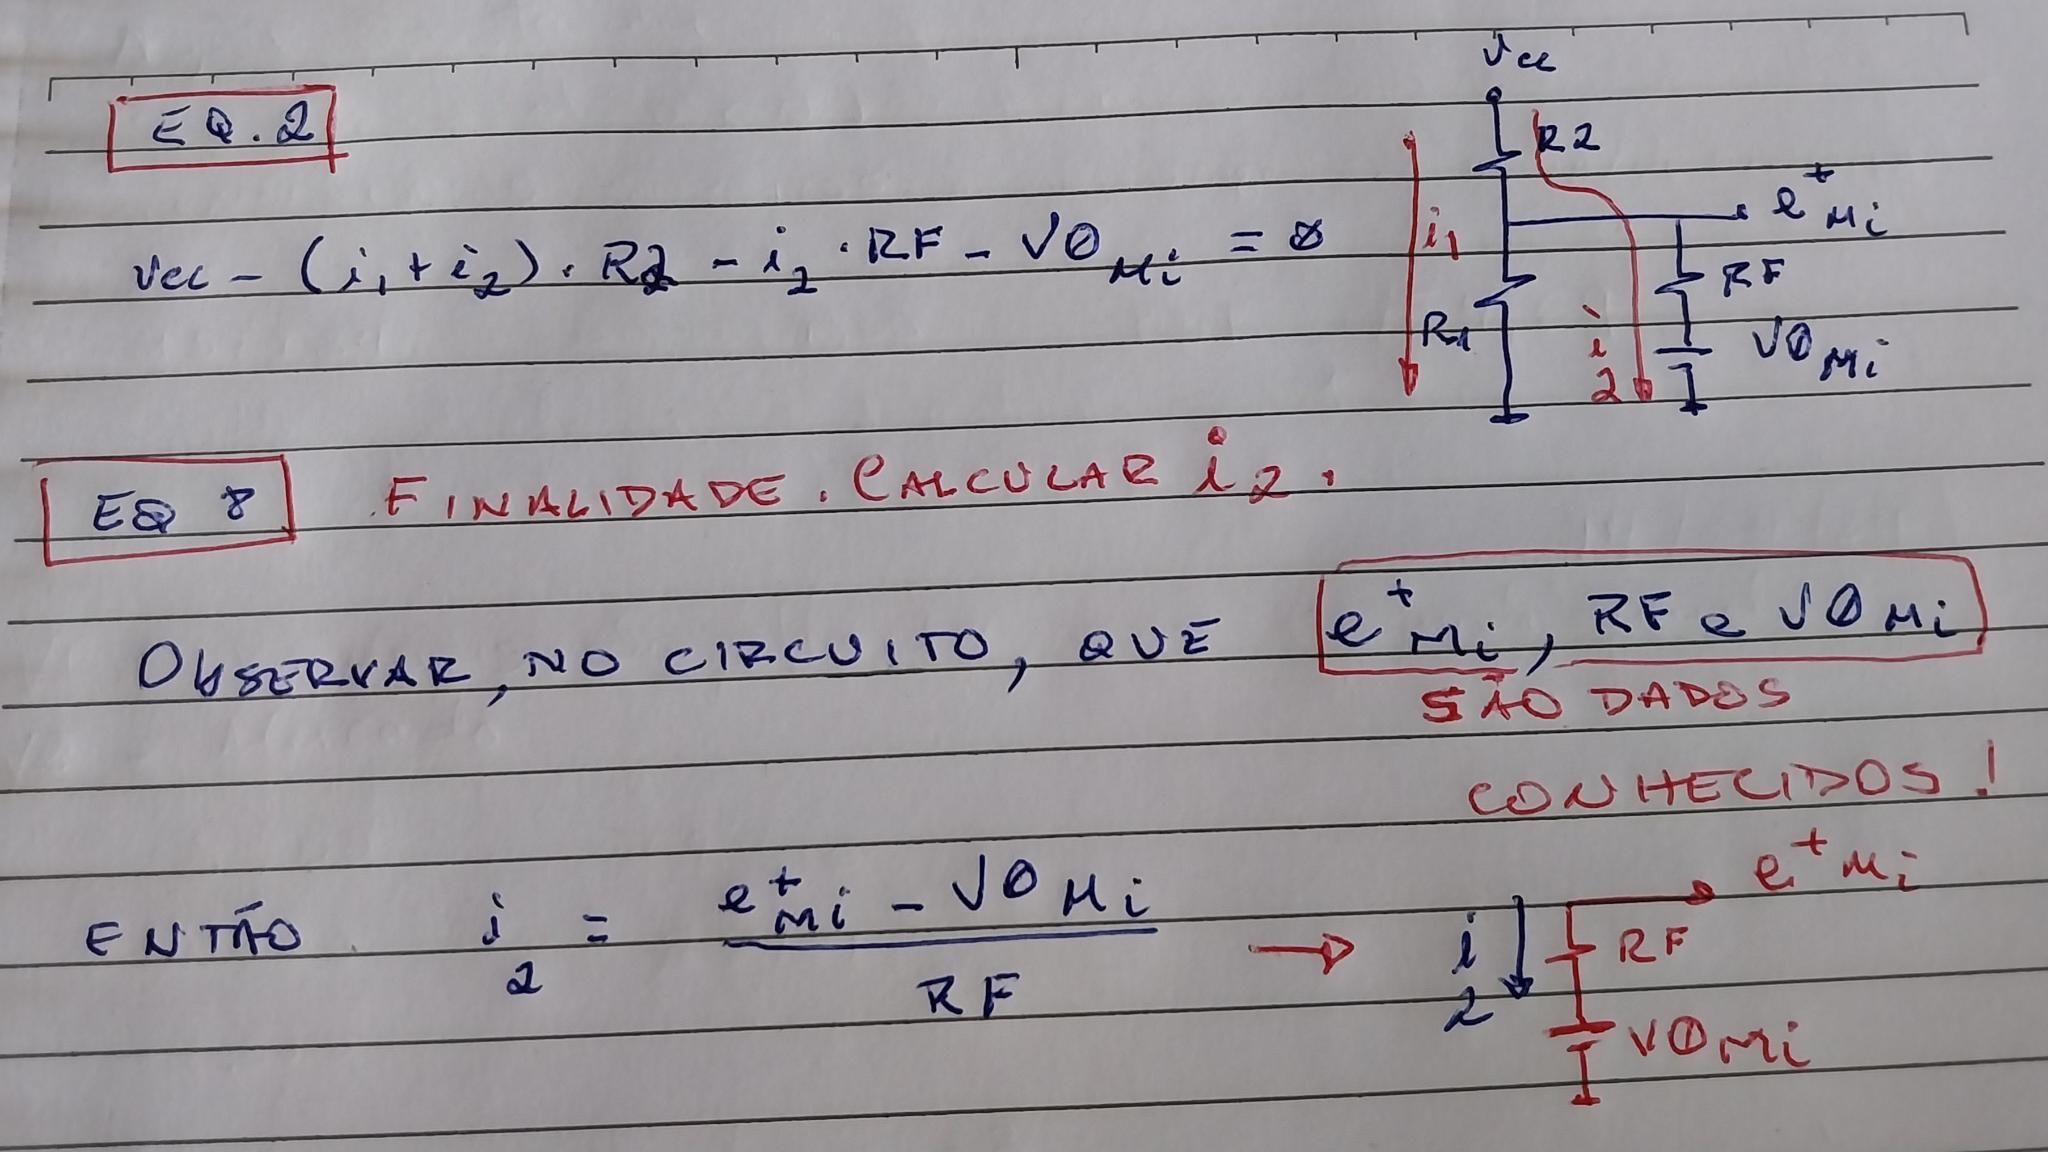 Vcc
EQ. 2
R2
e⁺Mi
Vcc - (i₁ + i₂) . R2 - i₂ . RF - VØMi = Ø
i1
RF
R1
i2
VØMi
EQ 8 FINALIDADE. CALCULAR i2.
OBSERVAR, NO CIRCUITO, QUE e⁺Mi, RF e VØMi
SÃO DADOS
CONHECIDOS!
ENTÃO i2 = (e⁺Mi - VØMi) / RF →
e⁺Mi
i2
RF
VØMi